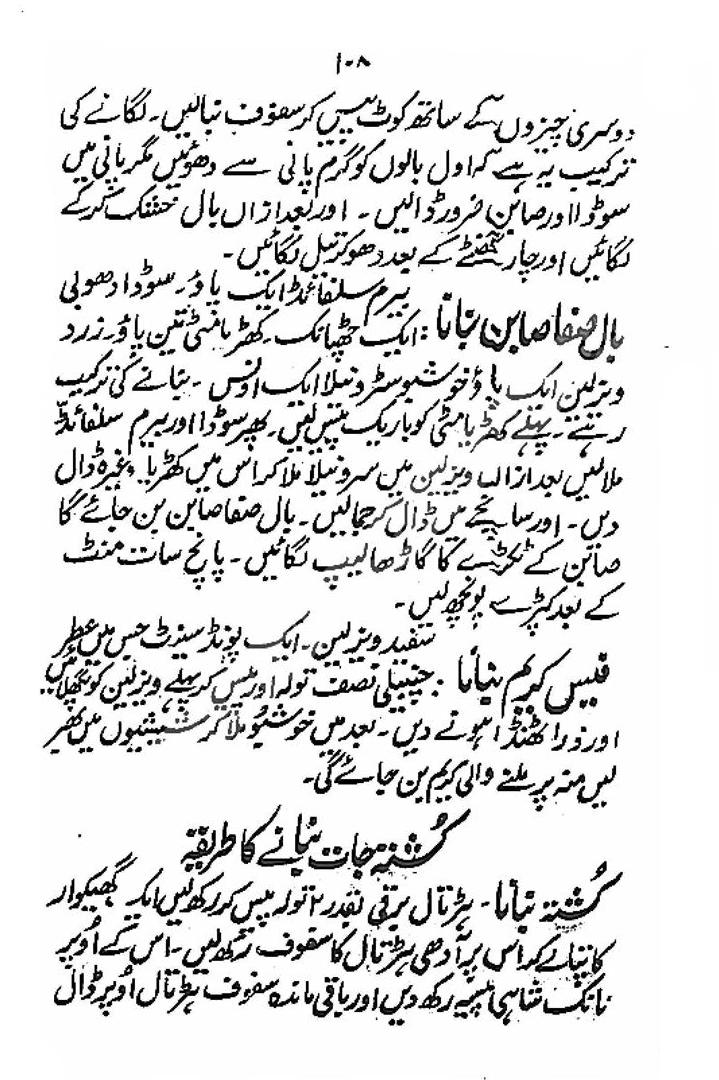 ۱۰۸
دوسری چیزوں کے ساتھ کوٹ پیس کر سفوف بنالیں۔ لگانے کی
ترکیب یہ ہے کہ اول بالوں کو گرم پانی سے دھوئیں مگر پانی میں
سوڈا اور صابن ضرور ڈالیں۔ اور بعد ازاں بال خشک کر کے
لگائیں اور چار گھنٹے کے بعد دھو کر تیل لگائیں۔
بال صفا صابن بنانا : بیرم سلفائڈ ایک پاؤ۔ سوڈا دھوبی
ایک چھٹانک۔ کھڑیا مٹی تین پاؤ۔ زرد
ویزلین ایک پاؤ خوشبو سٹرونیلا ایک اونس۔ بنانے کی ترکیب
پہلے کھڑیا مٹی کو باریک پیس لیں۔ پھر سوڈا اور بیرم سلفائڈ
ملالیں بعد ازاں ویزلین میں سرونیلا ملا کر اس میں کھڑیا وغیرہ ڈال
دیں۔ اور سانچے میں ڈال کر جمالیں۔ بال صفا صابن بن جائے گا
صابن کے ٹکڑے کا گاڑھا لیپ لگائیں۔ پانچ سات منٹ
کے بعد کپڑے پونچھ لیں۔
فیس کریم بنانا : سفید ویزلین۔ ایک پونڈ سینٹ جس میں عطر
چنبیلی نصف تولہ اور پیس کر پہلے ویزلین کو پگھلائیں
اور ذرا ٹھنڈا ہونے دیں۔ بعد میں خوشبو ملا کر شیشیوں میں بھر
لیں منہ پر ملنے والی کریم بن جائے گی۔
کُشتہ جات بنانے کا طریقہ
کُشتہ بنانا۔ ہڑتال برقی بقدر ۲ تولہ پیس کر رکھ لیں ایک گھیکوار
کا پتالے کر اس پر آدھی ہڑتال کا سفوف رکھ لیں۔ اس کے اُوپر
نانک شاہی پیسہ رکھ دیں اور باقی ماندہ سفوف ہڑتال اُوپر ڈال